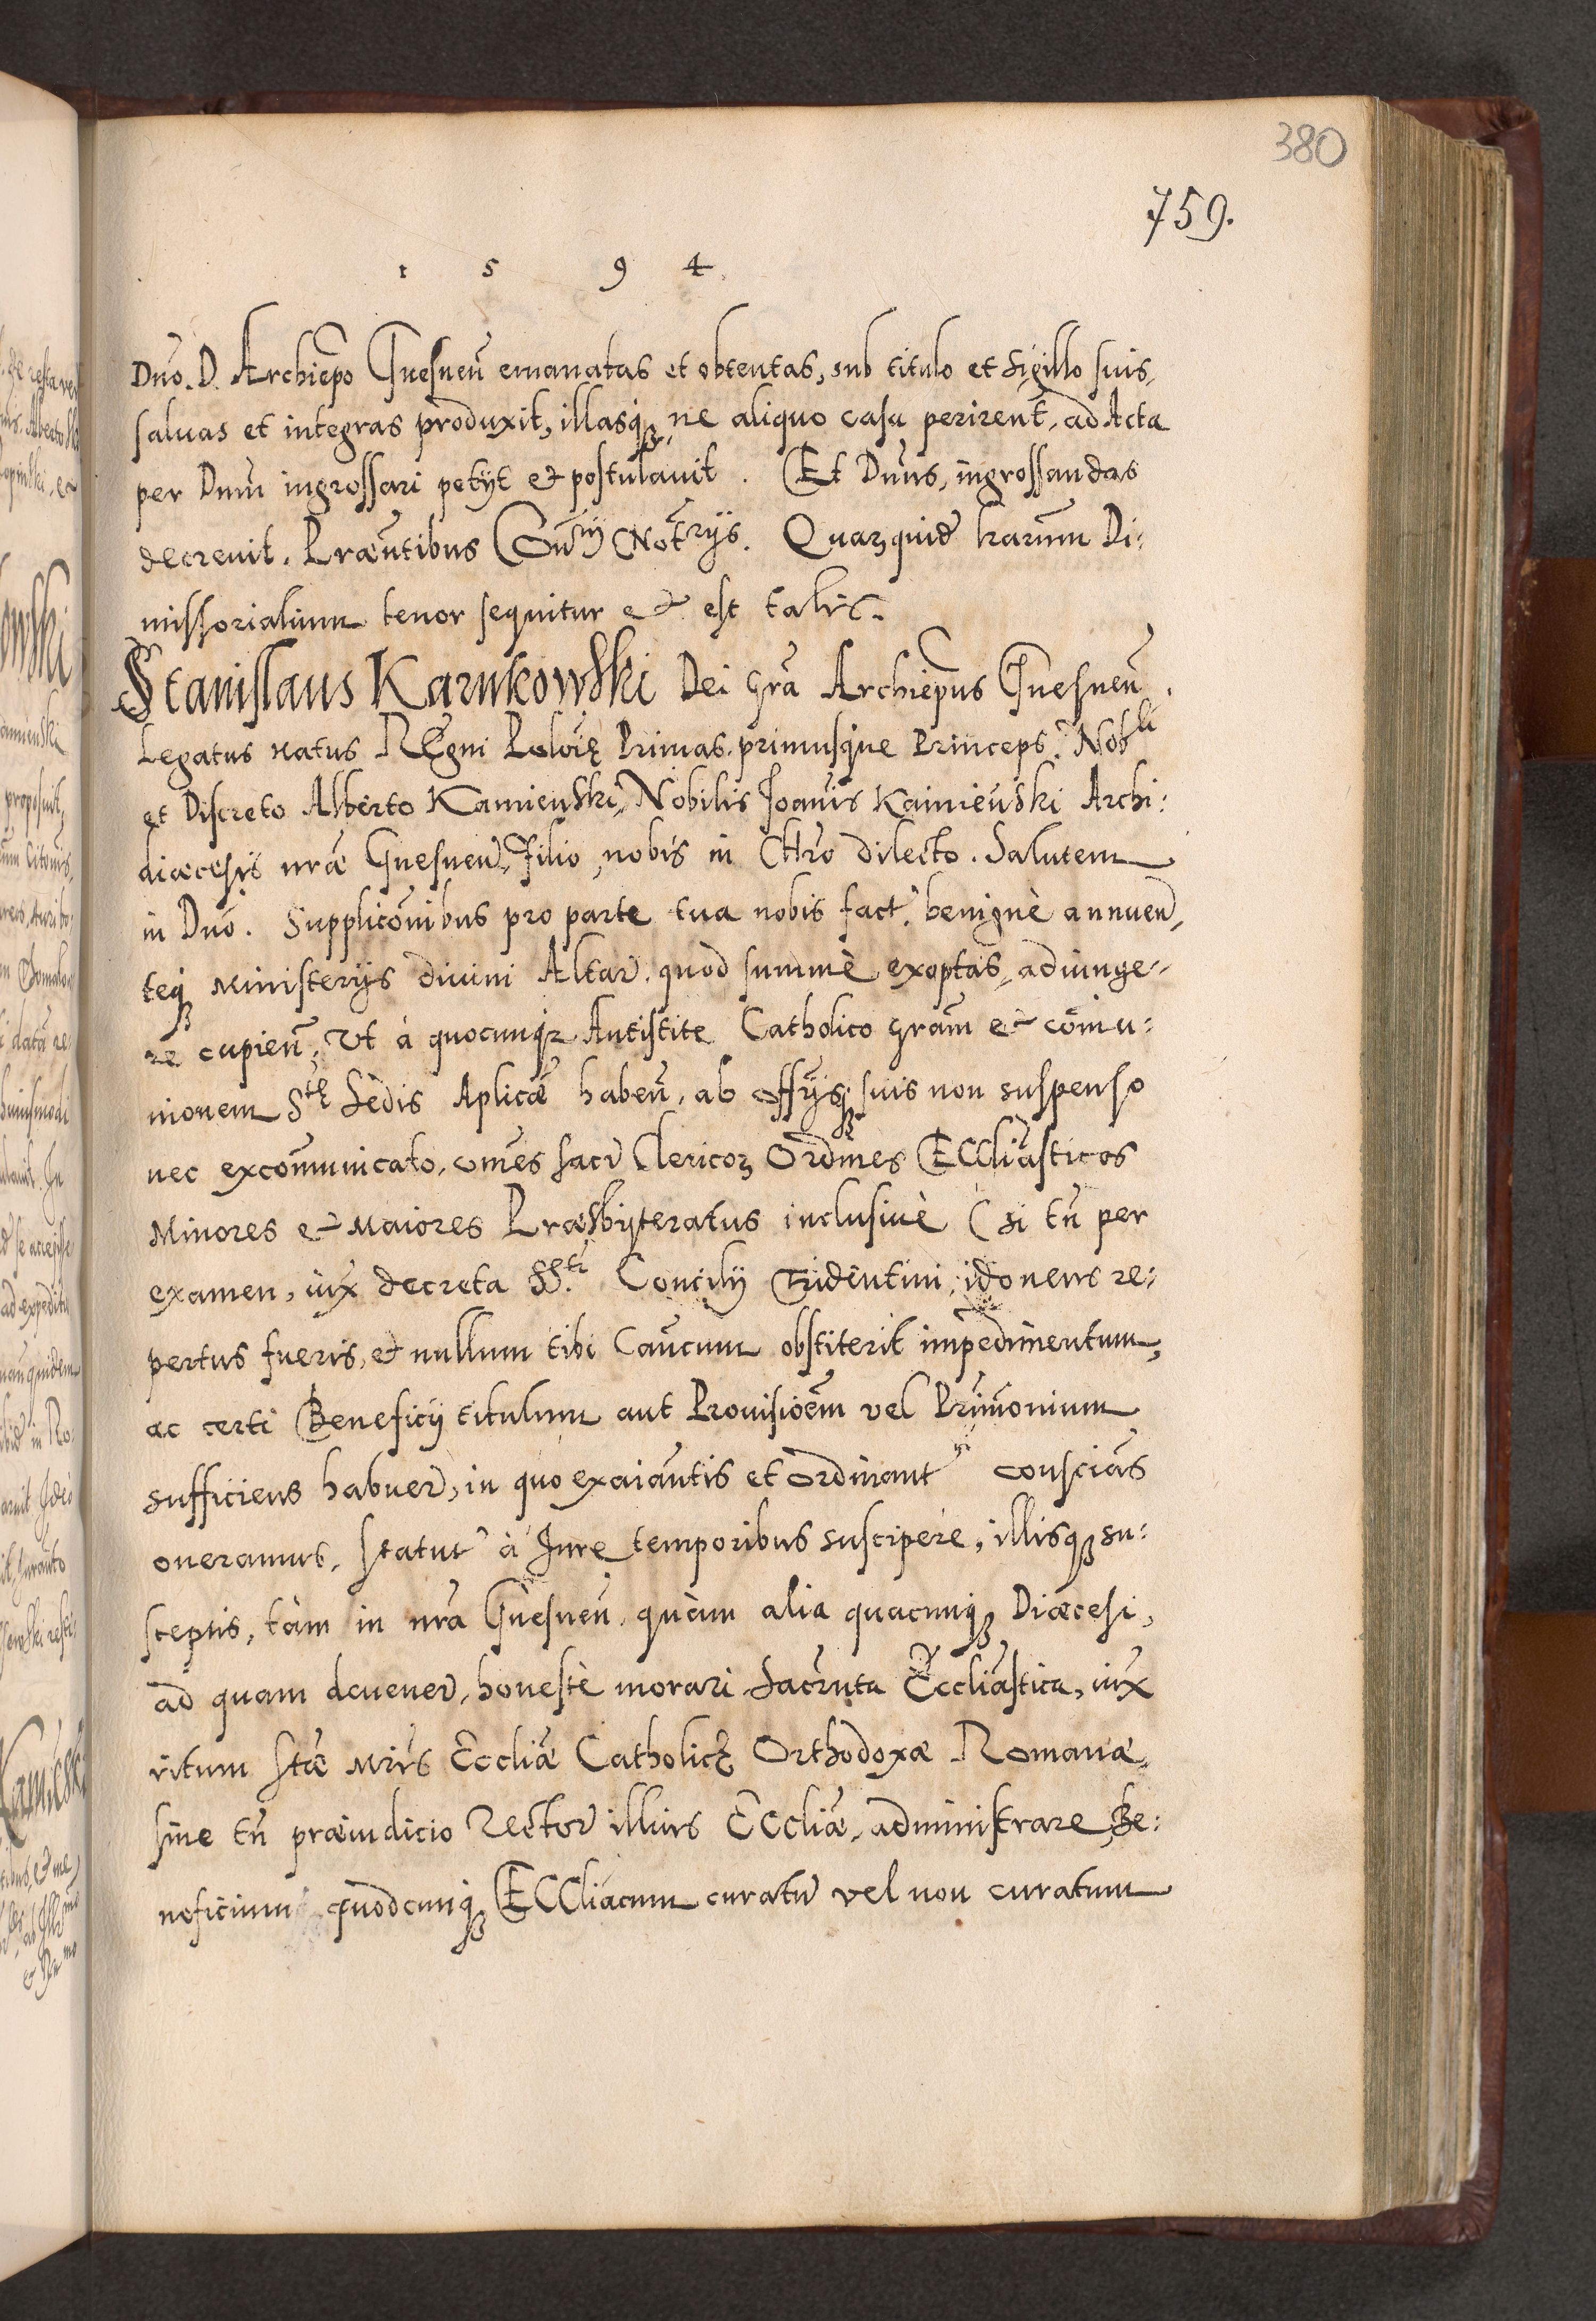 380
759.
1 5 9 4
Dno. D. Archiepo Gnesnen emanatas et obtentas, sub titulo et sigillo suis,
saluas et integras produxit, illasq; ne aliquo casu perirent, ad Acta
per Dnm ingrossari petyt et postulauit. Et Dnus, ingrossandas
decreuit. Praesentibus Notrijs. Quarz quid lrarum Di:
missorialium tenor sequitur et est talis.
Stanislaus Karnkowski Dei gra Archiepus Gnesnen.
Legatus natus Regni Polonię Primas, primusque Princeps. Nobli
et Discreto Alberto Kamienski, Nobilis Joannis Kamienski Archi:
diaecesis nrae Gnesnen, Filio, nobis in Chro dilecto. Salutem
in Dno. Supplicōnibus pro parte tua nobis fact. benignè annuen,
teq; ministerijs diuini Altar. quod summè exoptas, adiunge-
re cupien, Vt à quocunq; Antistite Catholico gram et cōmu:
nionem Stę Sedis Aplicae haben, ab offijsq; suis non suspenso
nec excommunicato, omes sacr Clericorz Ordines Eccliasticos
Minores et Maiores Praesbyteratus inclusiuè (si tn per
examen, iux decreta SSti Concilij Tridentini, idoneus re:
pertus fueris, et nullum tibi Cancum obstiterit impedimentum,
ac certi Beneficij titulum aut Prouisioēm vel Primonium
sufficiens habuer, in quo exaiantis et ordinant conscias
oneramus, statut à Iure temporibus suscipere, illisq; su:
sceptis, tàm in nra Gnesnen, quàm alia quacunq; Diaecesi,
ad quam deuener, honestè morari, Sacrmta Eccliastica, iux
ritum Stae Mris Eccliae Catholicę Orthodoxae Romanae,
sine tn praeiudicio Rector illius Eccliae, administrare, Be:
neficium quodcunq; Eccliacum curatū vel non curatum